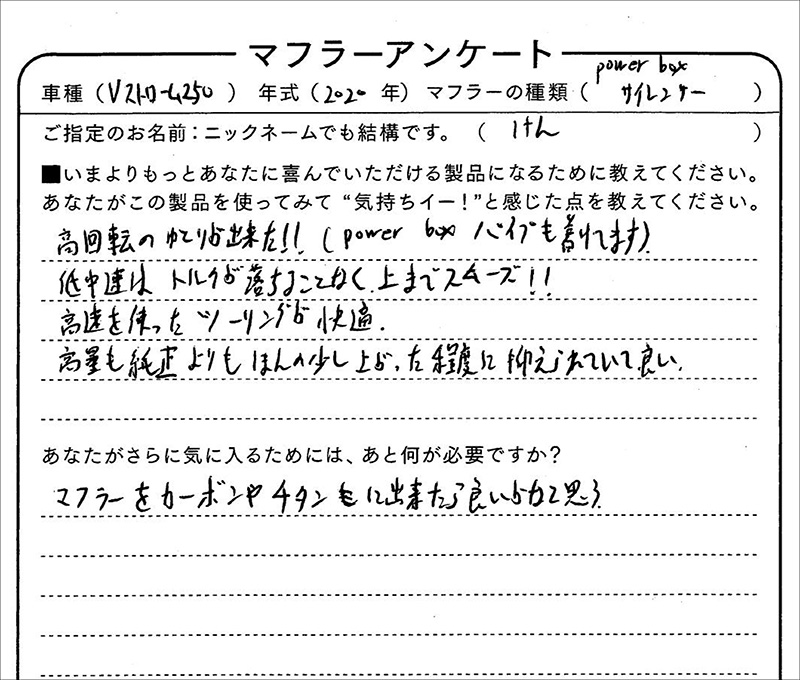 マフラーアンケート
車種（Vストローム250） 年式（2020 年）マフラーの種類（power box サイレンサー）
ご指定のお名前：ニックネームでも結構です。（ けん ）
■いまよりもっとあなたに喜んでいただける製品になるために教えてください。
あなたがこの製品を使ってみて “気持ちイー！”と感じた点を教えてください。
高回転のゆとりが出来た!!（power box パイプも着けてます）
低中速は トルクが落ちることなく 上までスムーズ!!
高速を使った ツーリングが 快適.
音量も純正よりも ほんの少し上がった程度に抑えられていて良い.
あなたがさらに気に入るためには、あと何が必要ですか？
マフラーをカーボンやチタン
出来たら良いかと思う.